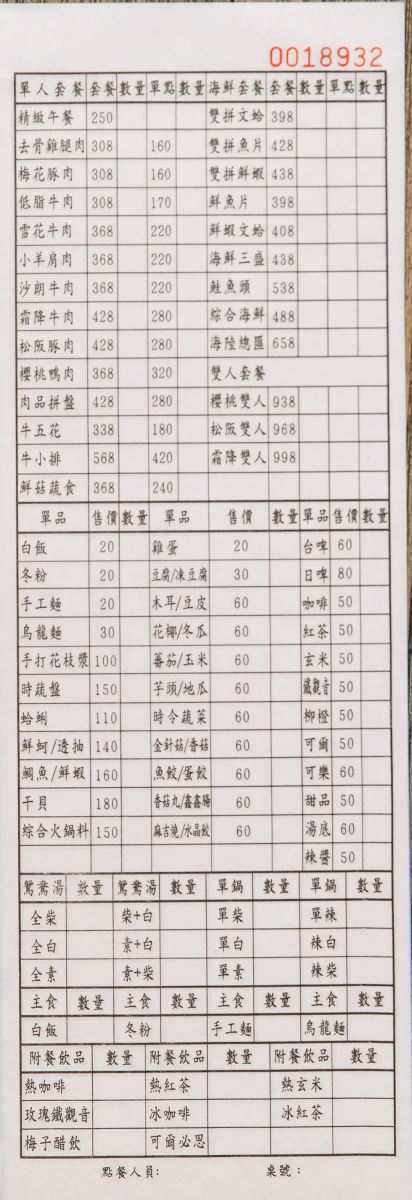 0018932
單人套餐 套餐 數量 單點 數量 海鮮套餐 套餐 數量 單點 數量
精緻午餐 250 雙拼文蛤 398
去骨雞腿肉 308 160 雙拼魚片 428
梅花豚肉 308 160 雙拼鮮蝦 438
低脂牛肉 308 170 鮮魚片 398
雪花牛肉 368 220 鮮蝦文蛤 408
小羊肩肉 368 220 海鮮三盛 438
沙朗牛肉 368 220 鮭魚頭 538
霜降牛肉 428 280 綜合海鮮 488
松阪豚肉 428 280 海陸總匯 658
櫻桃鴨肉 368 320 雙人套餐
肉品拼盤 428 280 櫻桃雙人 938
牛五花 338 180 松阪雙人 968
牛小排 568 420 霜降雙人 998
鮮菇蔬食 368 240
單品 售價 數量 單品 售價 數量 單品 售價 數量
白飯 20 雞蛋 20 台啤 60
冬粉 20 豆腐/凍豆腐 30 日啤 80
手工麵 20 木耳/豆皮 60 咖啡 50
烏龍麵 30 花椰/冬瓜 60 紅茶 50
手打花枝漿 100 蕃茄/玉米 60 玄米 50
時蔬盤 150 芋頭/地瓜 60 鐵觀音 50
蛤蜊 110 時令蔬菜 60 柳橙 50
鮮蚵/透抽 140 金針菇/香菇 60 可爾 50
鯛魚/鮮蝦 160 魚餃/蛋餃 60 可樂 60
干貝 180 香菇丸/鑫鑫腸 60 甜品 50
綜合火鍋料 150 麻吉燒/水晶餃 60 湯底 60
辣醬 50
鴛鴦湯 數量 鴛鴦湯 數量 單鍋 數量 單鍋 數量
全柴 柴+白 單柴 單辣
全白 素+白 單白 辣白
全素 素+柴 單素 辣柴
主食 數量 主食 數量 主食 數量 主食 數量
白飯 冬粉 手工麵 烏龍麵
附餐飲品 數量 附餐飲品 數量 附餐飲品 數量
熱咖啡 熱紅茶 熱玄米
玫瑰鐵觀音 冰咖啡 冰紅茶
梅子醋飲 可爾必思
點餐人員: 桌號: